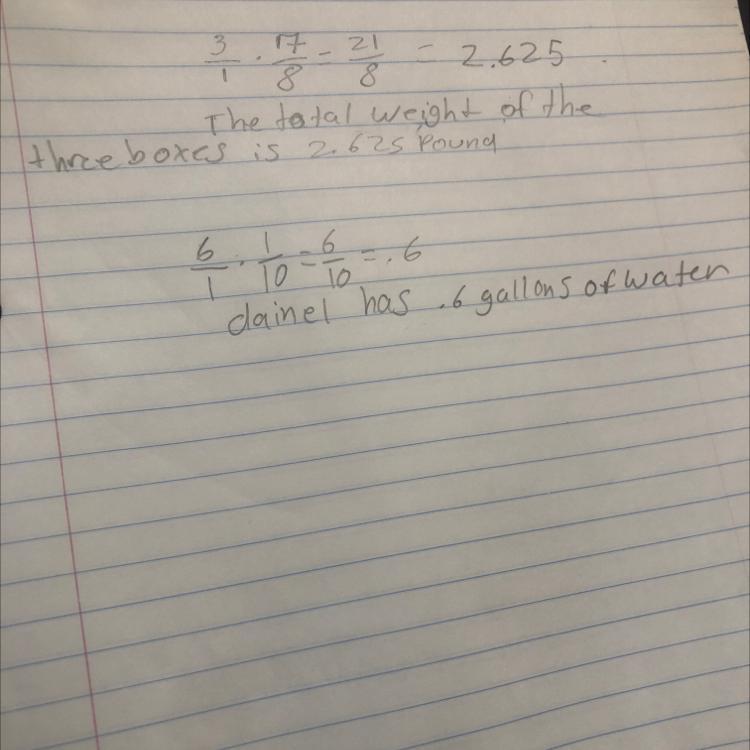 3/1 · 17/8 = 21/8 = 2.625 .
The total weight of the
three boxes is 2.625 Pound
6/1 · 1/10 = 6/10 = .6
dainel has .6 gallons of water